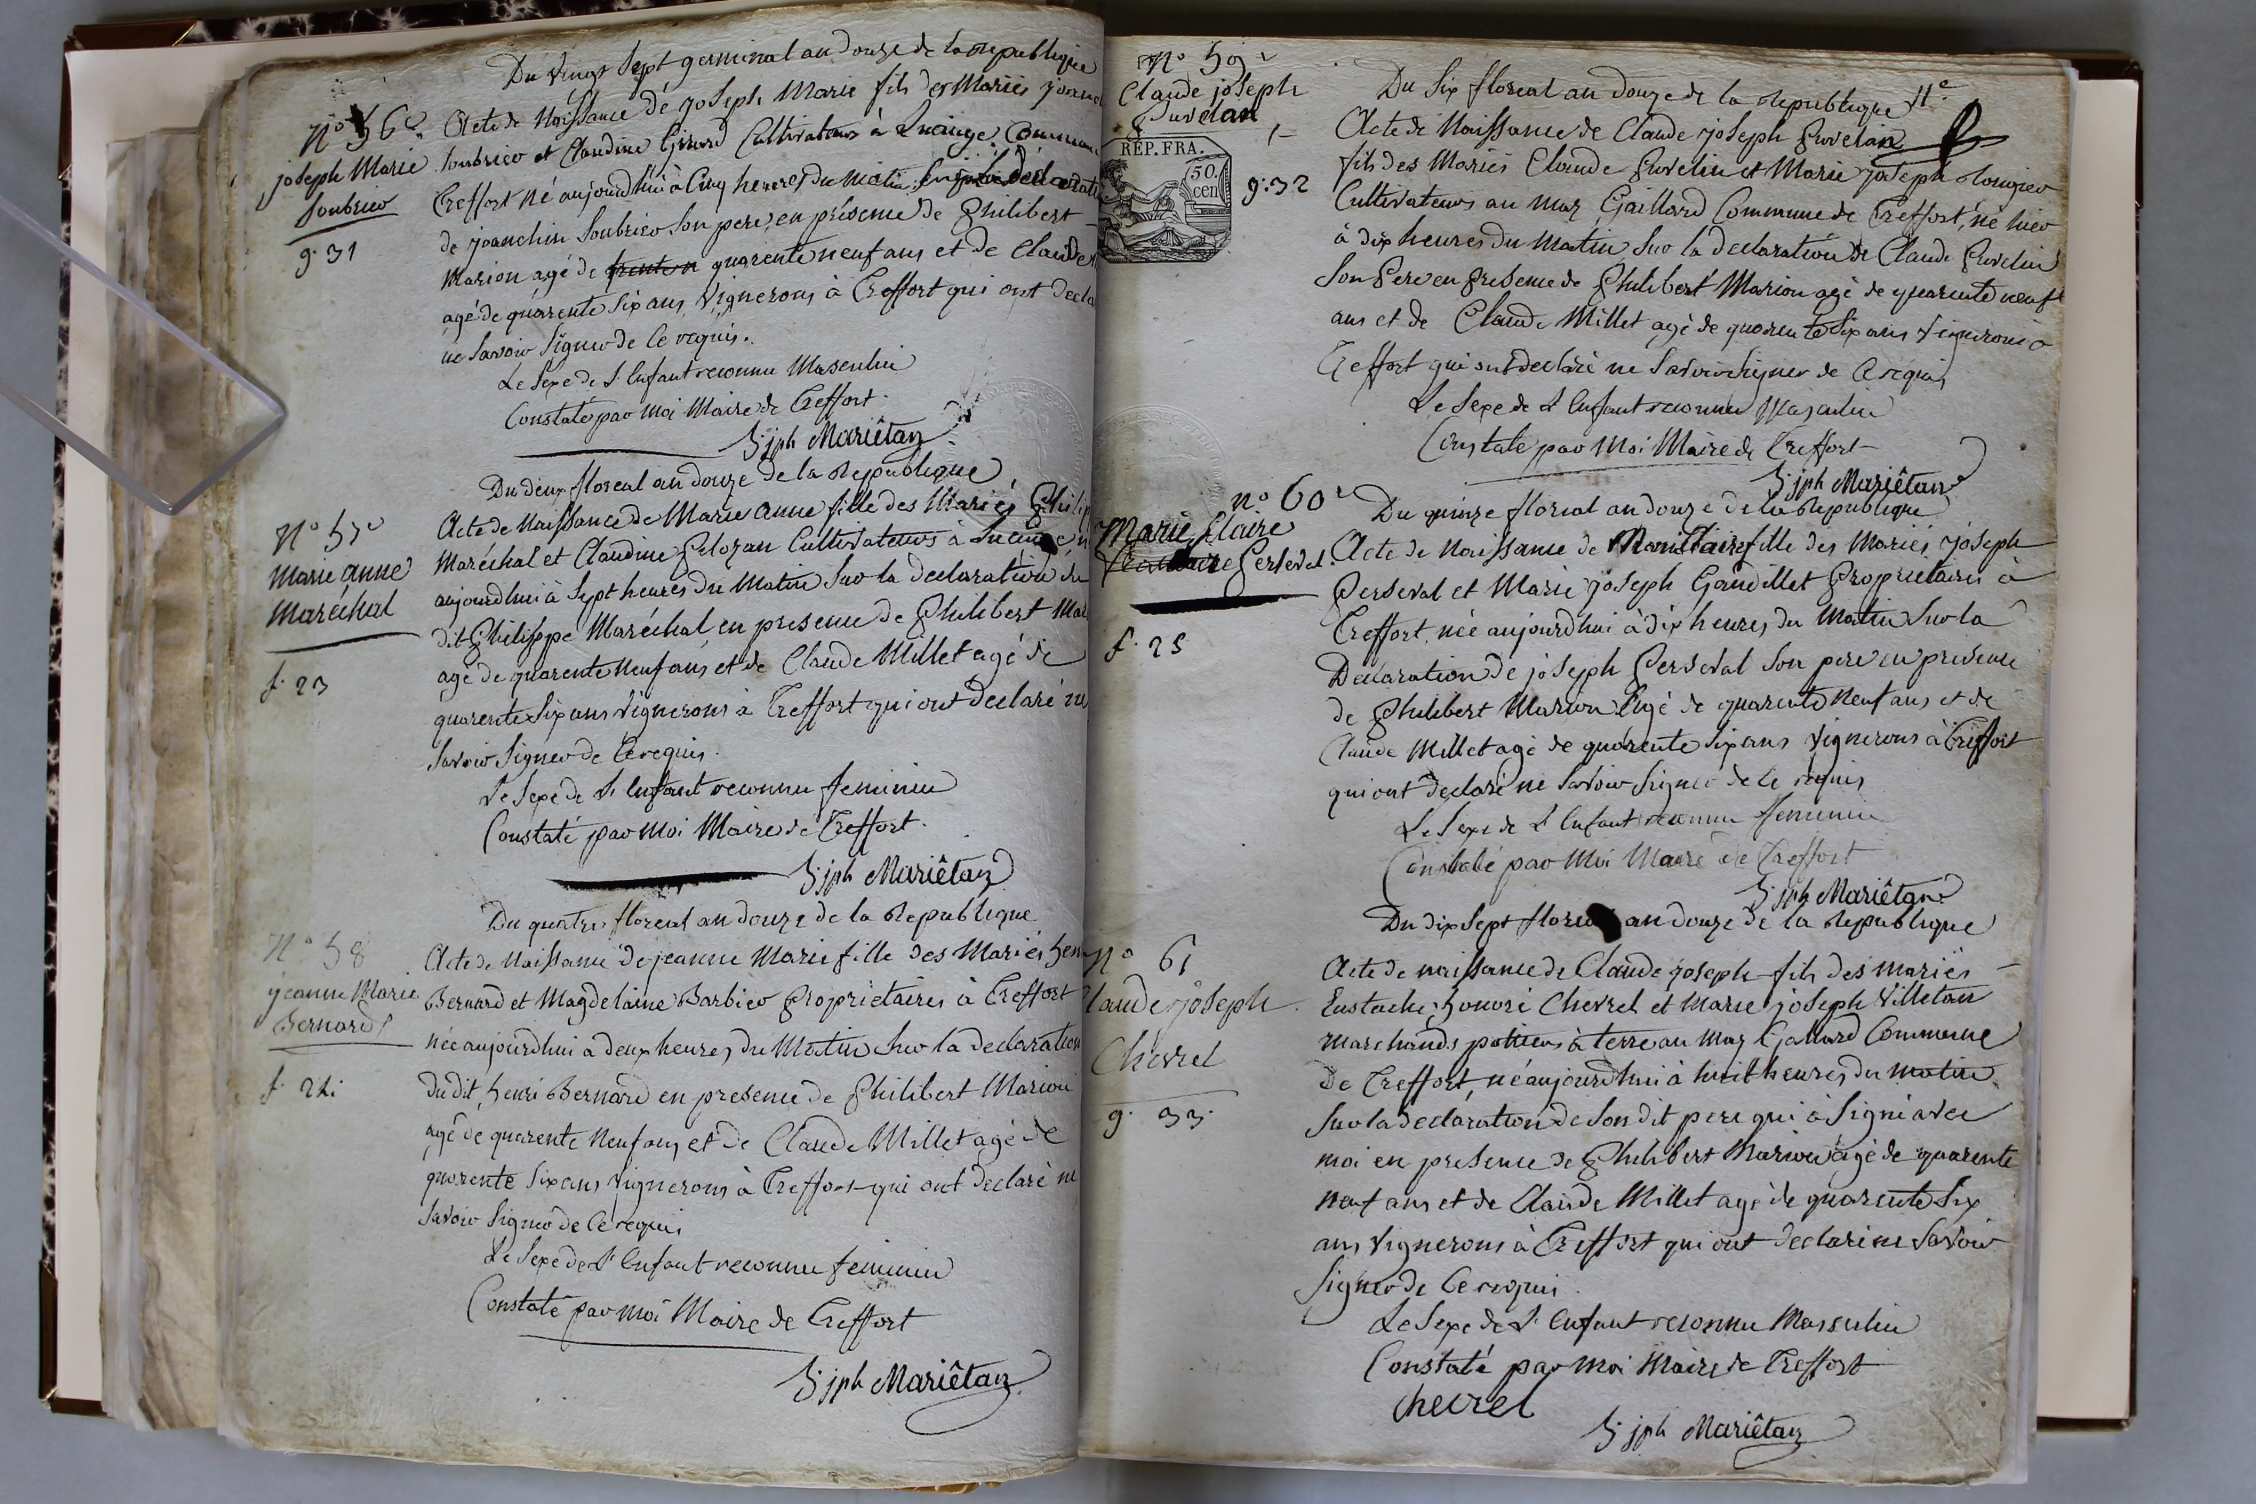 Du vingt Sept germinal an douze de la republique
N° 56e
joseph Marie
Soubrier
g. 31
Acte de Naissance de joseph Marie fils des Mariés
Soubrier et Claudine Girard Cultivateurs à Lucinge Commune
Treffort né aujourdhui à Cinq heures du Matin
de joanchin Soubrier Son pere, en présence de Philibert
Marion agé de trente n quarente neuf ans et de Claude
agé de quarente Six ans, Vignerons à Treffort qui ont
ne Savoir Signer de Ce requis.
Le Sexe de L'Enfant reconnu Masculin
Constaté par Moi Maire de Treffort.
h. jph Mariêtan
Du deux floreal an douze de la Republique
N° 57e
Marie anne
Maréchal
f. 23
Acte de Naissance de Marie anne fille des Mariés
Maréchal et Claudine Cultivateurs à
aujourdhui à Sept heures du Matin Sur la declaration du
dit Philippe Maréchal en presence de Philibert
agé de quarente Neuf ans et de Claude Millet agé de
quarente Six ans Vignerons à Treffort qui ont declaré ne
Savoir Signer de Ce requis.
Le Sexe de L'Enfant reconnu feminin
Constaté par Moi Maire de Treffort.
h. jph Mariêtan
Du quatre floreal an douze de la Republique
N° 58
jeanne Marie
Bernard
f. 24.
Acte de Naissance de jeanne Marie fille des Mariés
Bernard et Magdelaine Barbier Proprietaires à Treffort
née aujourdhui à deux heures du Matin Sur la declaration
du dit henri Bernard en presence de Philibert Marion
agé de quarente Neuf ans et de Claude Millet agé de
quarente Six ans Vignerons à Treffort qui ont declaré ne
Savoir Signer de Ce requis
Le Sexe de L'Enfant reconnu feminin
Constaté par moi Maire de Treffort
h. jph Mariêtan
N° 59e
Claude joseph
Puvelan
REP. FRA.
50.
cen
g. 32
11e
Du Six floreal an douze de la Republique
Acte de Naissance de Claude joseph Puvelan
fils des Mariés Claude Puvelin et Marie joseph
Cultivateurs au Maz Gaillard Commune de Treffort, né hier
à dix heures du Matin Sur la declaration de Claude Puvelin
Son Pere en Presence de Philibert Marion agé de quarente neuf
ans et de Claude Millet agé de quarente Six ans Vignerons à
Treffort qui ont declaré ne Savoir Signer de Ce requis
Le Sexe de L'Enfant reconnu Masculin
Constaté par Moi Maire de Treffort
h. jph Mariêtan
n° 60e
Marie Claire
Perseval
f. 25
Du quinze floreal an douze de la Republique
Acte de Naissance de Marie Claire fille des Mariés joseph
Perseval et Marie joseph Gaudillet Proprietaires à
Treffort, née aujourdhui à dix heures du Matin Sur la
Declaration de joseph Perseval Son pere en presence
de Philibert Marion Agé de quarente Neuf ans et de
Claude Millet agé de quarente Six ans Vignerons à Treffort
qui ont declaré ne Savoir Signer de Ce requis
Le Sexe de L'Enfant reconnu feminin
Constaté par Moi Maire de Treffort
h. jph Mariêtan
Du dix Sept floreal an douze de la Republique
N° 61
Claude joseph
Chevrel
g. 33.
Acte de naissance de Claude joseph fils des mariés
Eustache, honoré Chevrel et Marie joseph Villetan
marchands potiers à terre au Maz Gaillard Commune
De Treffort, né aujourdhui à huit heures du matin
Sur la declaration de Son dit pere qui à Signé avec
moi en presence de Philibert Marion agé de quarente
neuf ans et de Claude Millet agé de quarente Six
ans, Vignerons à Treffort qui ont declaré ne Savoir
Signer de Ce requis.
Le Sexe de L'Enfant reconnu Masculin
Constaté par moi Maire de Treffort
Chevrel
h. jph Mariêtan